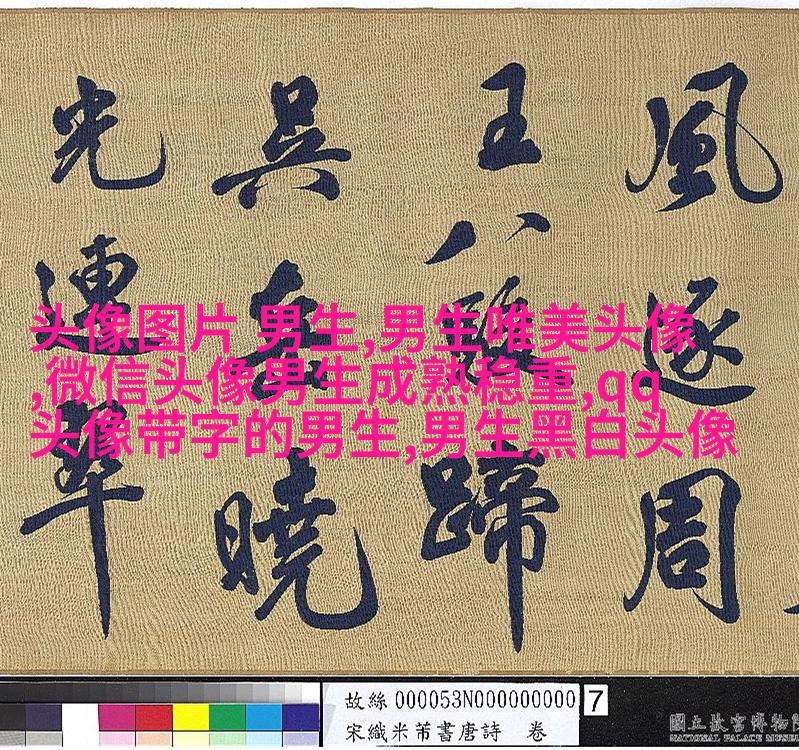 風逐周
王八駿蹄
吳岳曉
光連翠
头像图片 男生,男生唯美头像
,微信头像男生成熟稳重,qq
头像带字的男生,男生黑白头像
故絲000053N000000000 7
宋織米芾書唐詩 卷
國立故宮博物院
NATIONAL PALACE MUSEUM